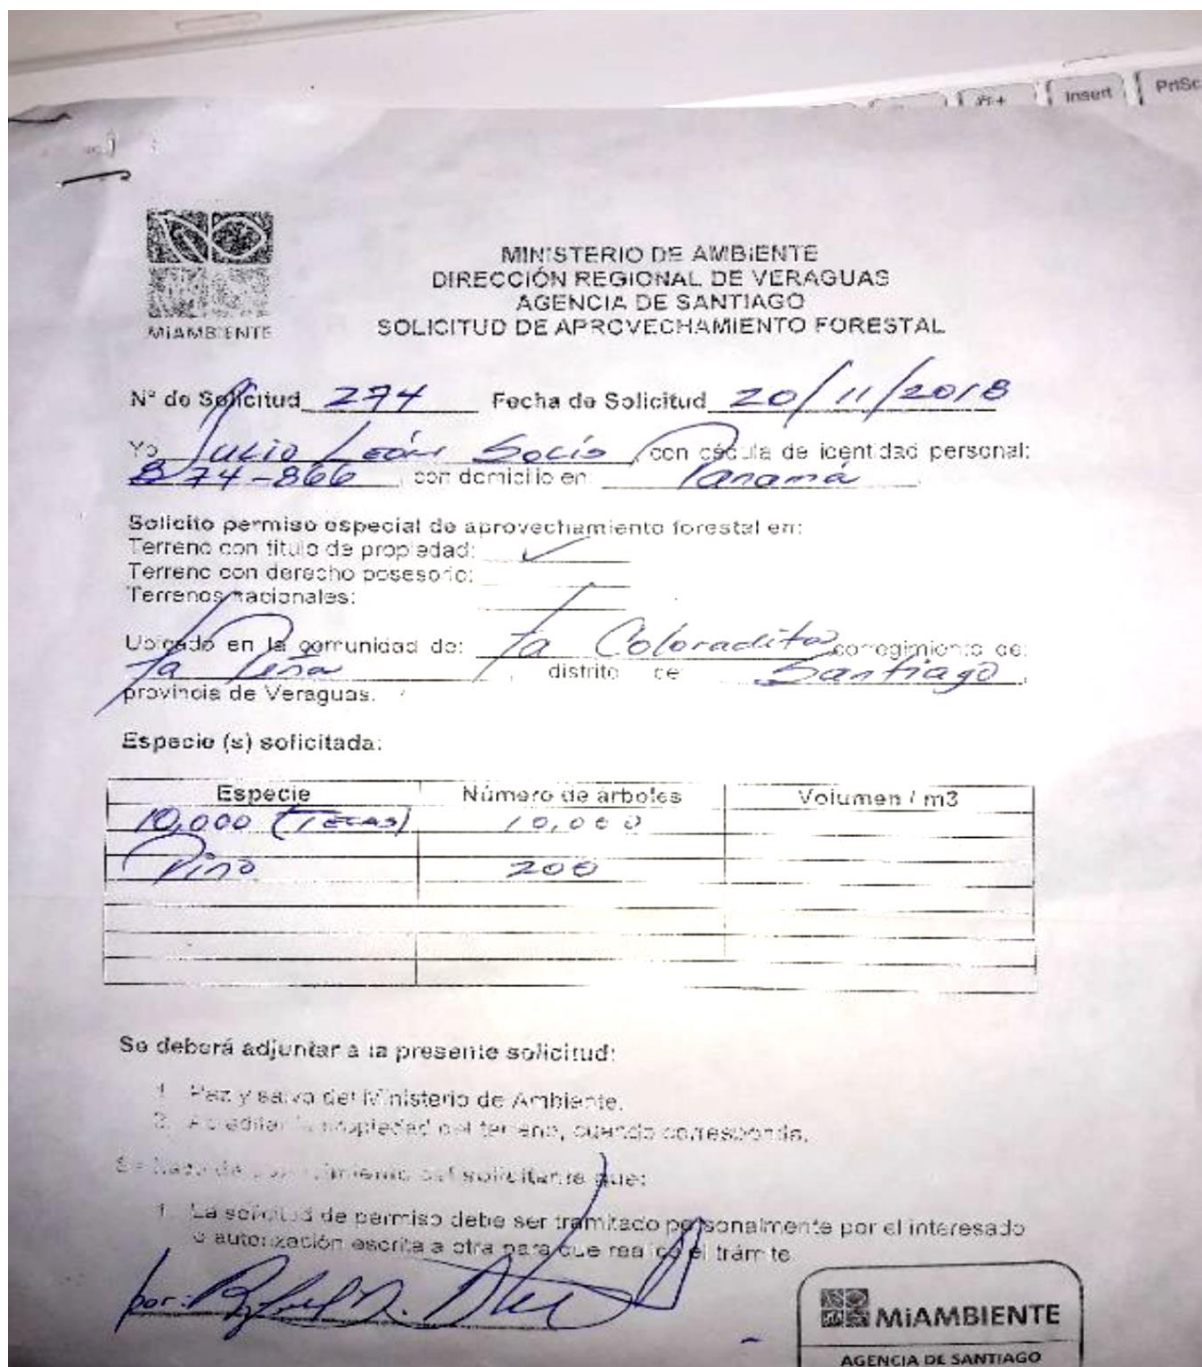 Insert
PrtSc
MIAMBIENTE
MINISTERIO DE AMBIENTE
DIRECCIÓN REGIONAL DE VERAGUAS
AGENCIA DE SANTIAGO
SOLICITUD DE APROVECHAMIENTO FORESTAL
N° de Solicitud 274 Fecha de Solicitud 20/11/2018
Yo Julio León Solís, con cédula de identidad personal:
8 74-866, con domicilio en: Panamá
Solicito permiso especial de aprovechamiento forestal en:
Terreno con título de propiedad: ✓
Terreno con derecho posesorio:
Terrenos nacionales:
Ubicado en la comunidad de: La Coloradita corregimiento de:
La Peña, distrito de Santiago,
provincia de Veraguas.
Especie (s) solicitada:
Especie Número de árboles Volumen / m3
10,000 (Tecas) 10,000
Pino 200
Se deberá adjuntar a la presente solicitud:
1. Paz y salvo del Ministerio de Ambiente.
2. Acreditar la propiedad del terreno, cuando corresponda.
Se hace de conocimiento del solicitante que:
1. La solicitud de permiso debe ser tramitado personalmente por el interesado
o autorización escrita a otra para que realice el trámite
por:
MiAMBIENTE
AGENCIA DE SANTIAGO